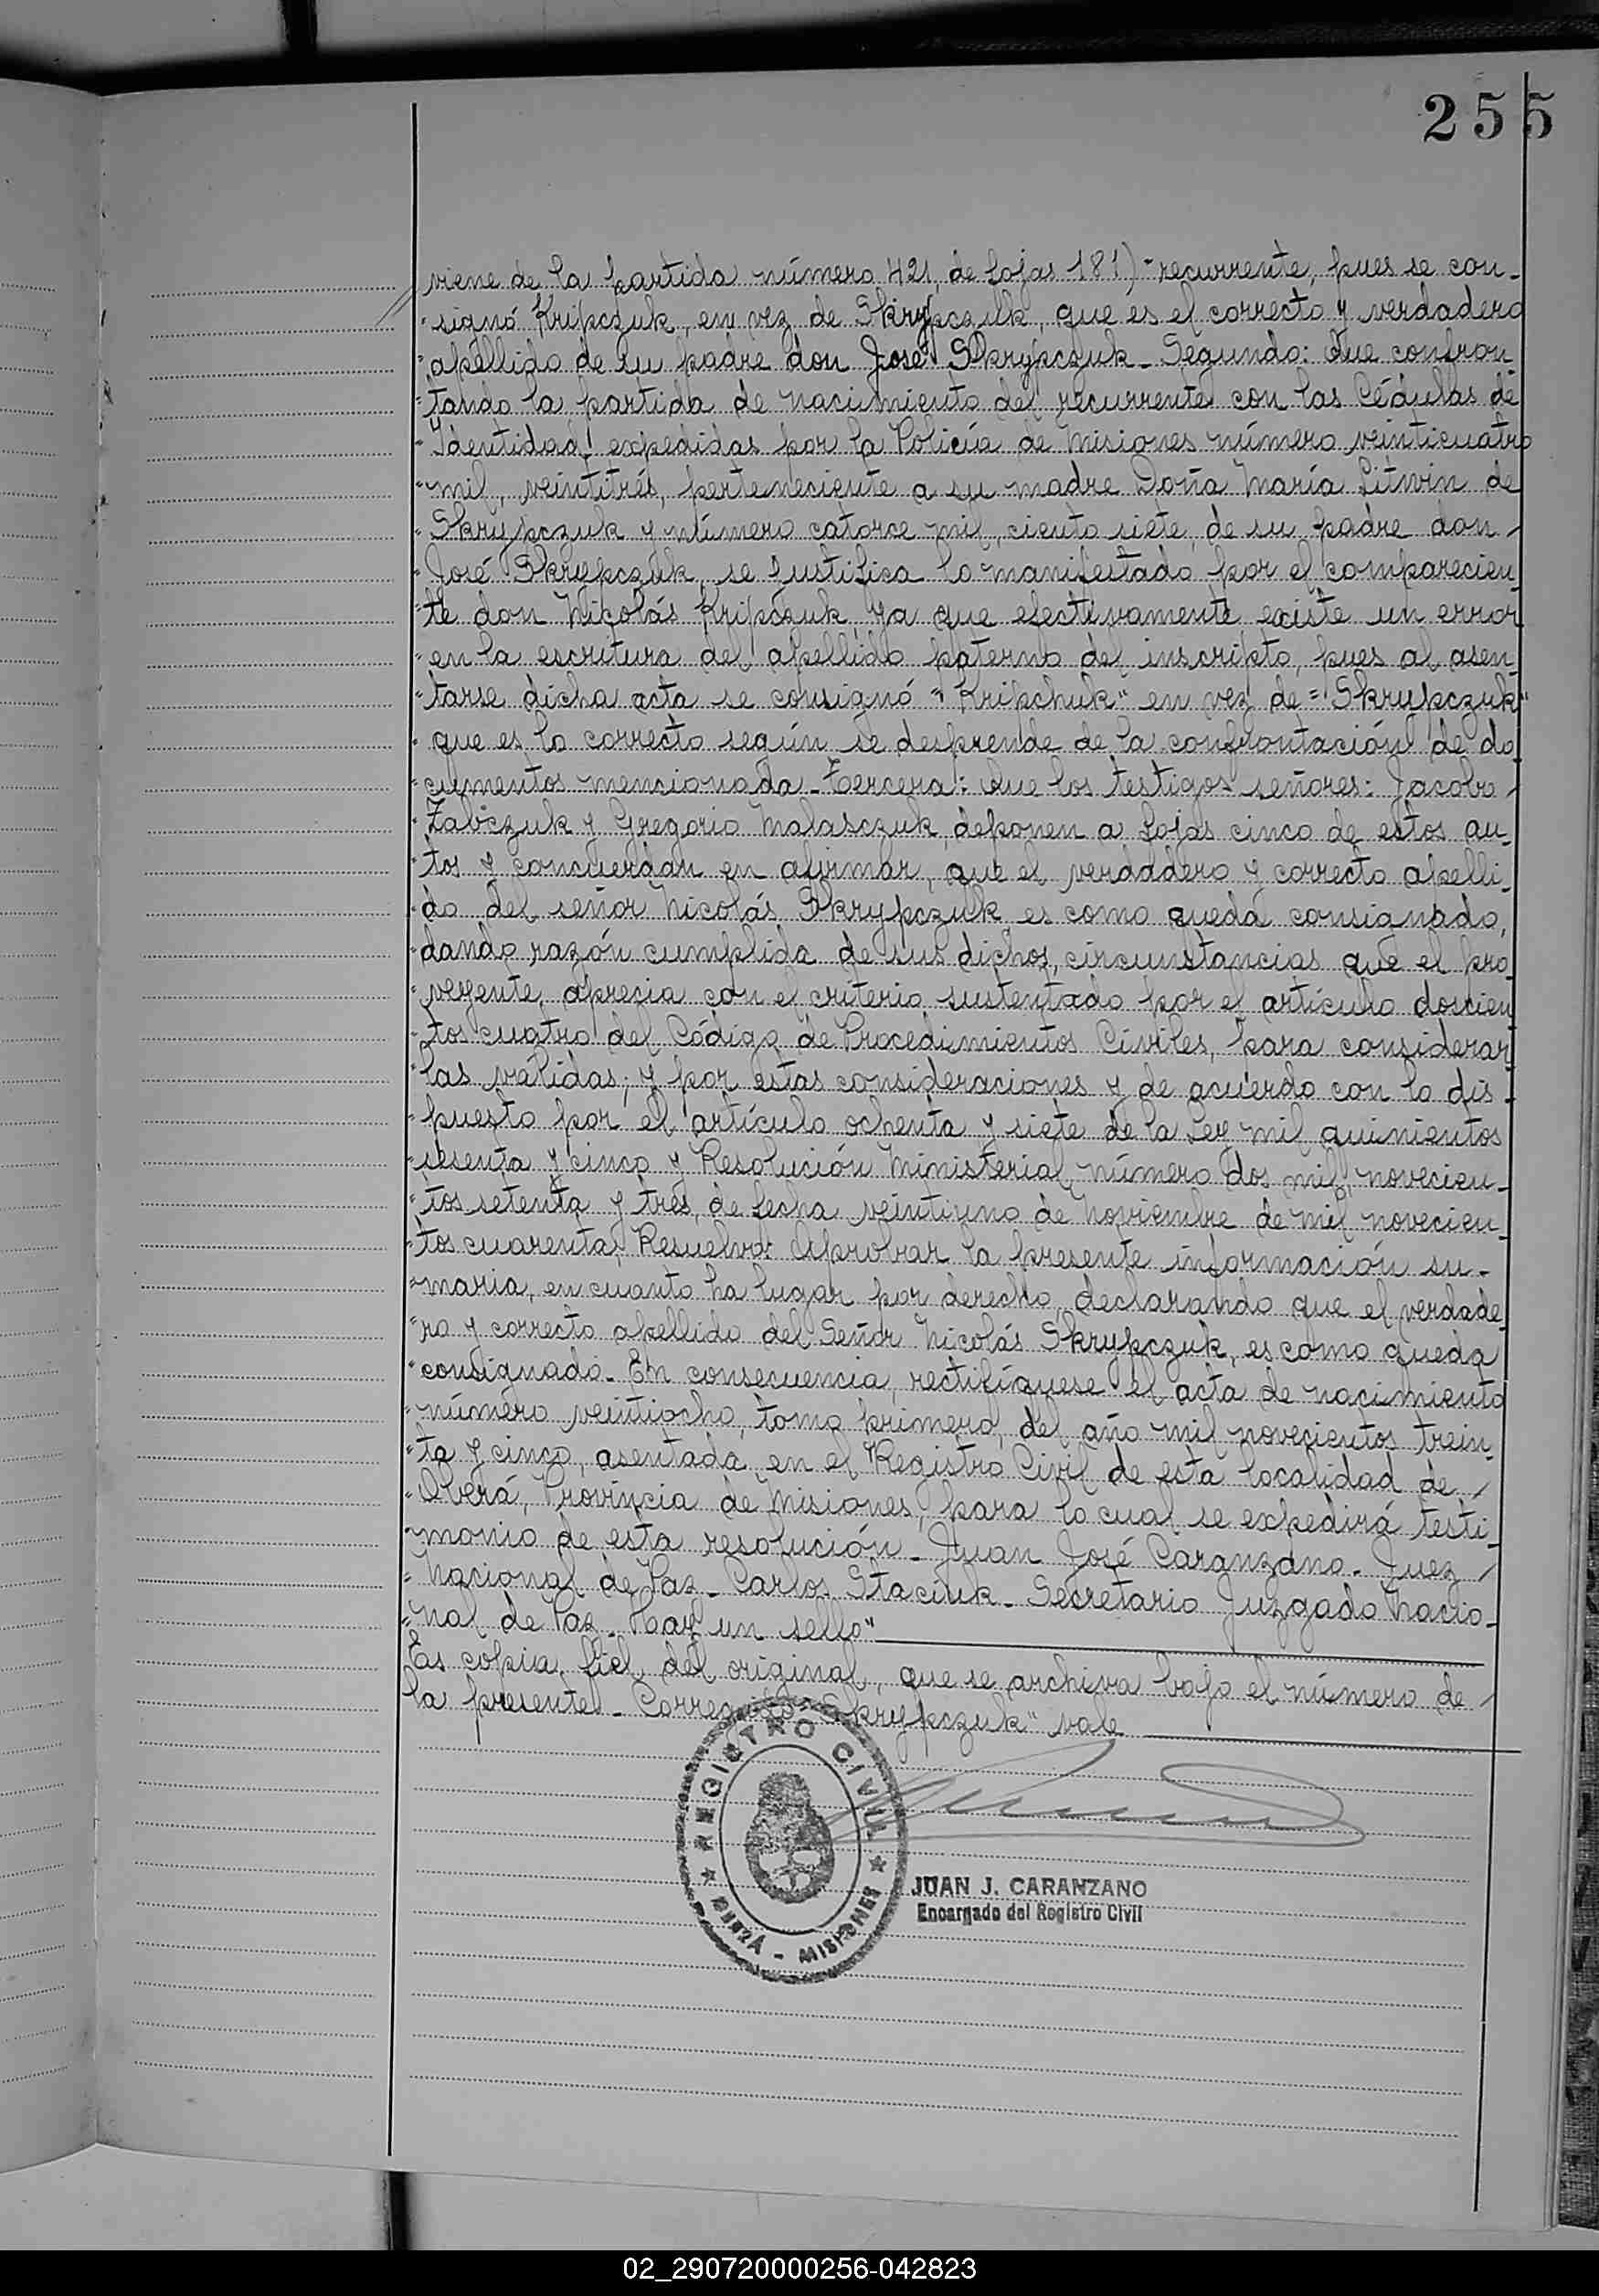 255
viene de la partida número 421, de fojas 181) "recurrente, pues se con-
"signó Kripczuk, en vez de Skrypczuk, que es el correcto y verdadero
"apellido de su padre don José Skrypczuk_ Segundo: Que confron-
"tando la partida de nacimiento del recurrente con las Cédulas de
"Identidad, expedidas por la Policía de Misiones número veinticuatro
"mil, veintitrés, perteneciente a su madre Doña María Litwin de
"Skrypczuk y número catorce mil, ciento siete, de su padre don
"José Skrypczuk, se justifica lo manifestado por el comparecien-
"te don Nicolás Kripczuk, ya que efectivamente existe un error
"en la escritura del apellido paterno del inscripto, pues al asen-
"tarse dicha acta se consignó "Kripchuk" en vez de "Skrypczuk"
"que es lo correcto según se desprende de la confrontación de do-
"cumentos mencionada_ Tercera: Que los testigos señores: Jacobo
"Zabczuk y Gregorio Malasczuk, deponen a fojas cinco de estos au-
"tos y concuerdan en afirmar, que el verdadero y correcto apelli-
"do del señor Nicolás Skrypczuk es como queda consignado,
"dando razón cumplida de sus dichos, circunstancias que el pro-
"veyente, aprecia con el criterio sustentado por el artículo doscien-
"tos cuatro del Código de Procedimientos Civiles, para considerar-
"las válidas; y por estas consideraciones y de acuerdo con lo dis-
"puesto por el artículo ochenta y siete de la Ley mil quinientos
"sesenta y cinco y Resolución Ministerial número dos mil, novecien-
"tos setenta y tres, de fecha veintiuno de Noviembre de mil novecien-
"tos cuarenta, Resuelvo: Aprobar la presente información su-
"maria, en cuanto ha lugar por derecho, declarando que el verdade-
"ro y correcto apellido del Señor Nicolás Skrypczuk, es como queda
"consignado_ En consecuencia, rectifíquese el acta de nacimiento
"número veintiocho, tomo primero, del año mil novecientos trein-
"ta y cinco, asentada en el Registro Civil de esta localidad de
"Oberá, Provincia de Misiones, para lo cual se expedirá testi-
"monio de esta resolución_ Juan José Caranzano_ Juez
"Nacional de Paz_ Carlos Staciuk_ Secretario Juzgado Nacio-
"nal de Paz_ Hay un sello"
Es copia fiel del original, que se archiva bajo el número de
la presente_ Corregido "Skrypczuk" vale
REGISTRO CIVIL
OBERÁ - MISIONES
JUAN J. CARANZANO
Encargado del Registro Civil
02_290720000256-042823